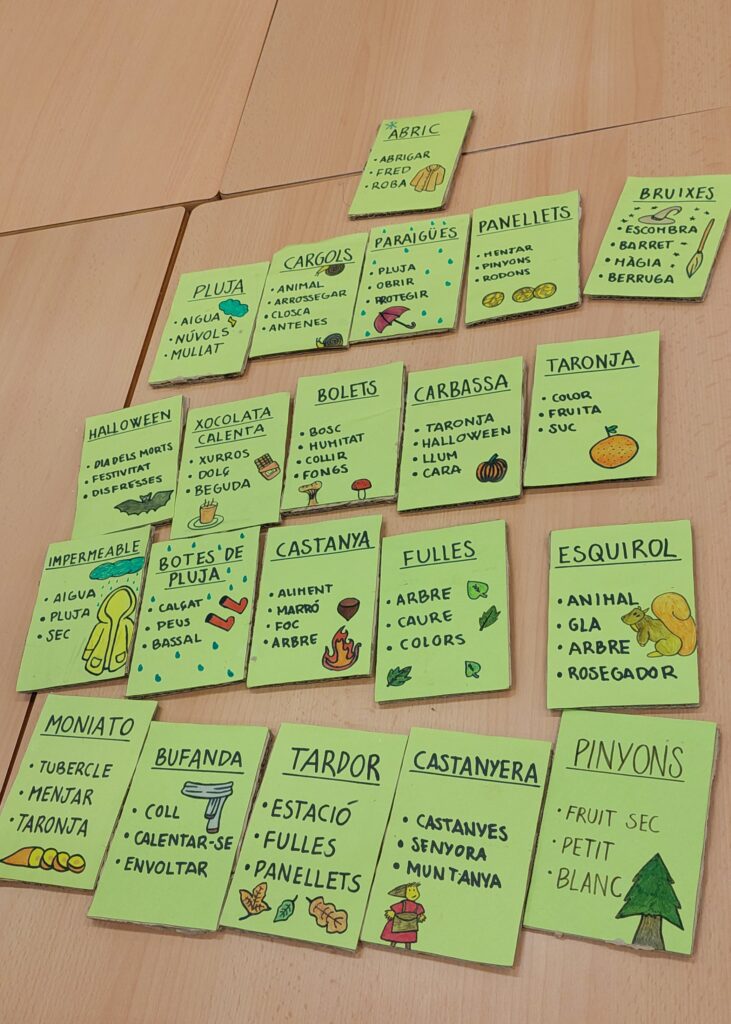 ABRIC
• ABRIGAR
• FRED
• ROBA
PLUJA
• AIGUA
• NÚVOLS
• MULLAT
CARGOLS
• ANIMAL
• ARROSSEGAR
• CLOSCA
• ANTENES
PARAIGÜES
• PLUJA
• OBRIR
• PROTEGIR
PANELLETS
• MENJAR
• PINYONS
• RODONS
BRUIXES
• ESCOMBRA
• BARRET
• MÀGIA
• BERRUGA
HALLOWEEN
• DIA DELS MORTS
• FESTIVITAT
• DISFRESSES
XOCOLATA
CALENTA
• XURROS
• DOLÇ
• BEGUDA
BOLETS
• BOSC
• HUMITAT
• COLLIR
• FONGS
CARBASSA
• TARONJA
• HALLOWEEN
• LLUM
• CARA
TARONJA
• COLOR
• FRUITA
• SUC
IMPERMEABLE
• AIGUA
• PLUJA
• SEC
BOTES DE
PLUJA
• CALÇAT
• PEUS
• BASSAL
CASTANYA
• ALIMENT
• MARRÓ
• FOC
• ARBRE
FULLES
• ARBRE
• CAURE
• COLORS
ESQUIROL
• ANIMAL
• GLA
• ARBRE
• ROSEGADOR
MONIATO
• TUBERCLE
• MENJAR
• TARONJA
BUFANDA
• COLL
• CALENTAR-SE
• ENVOLTAR
TARDOR
• ESTACIÓ
• FULLES
• PANELLETS
CASTANYERA
• CASTANYES
• SENYORA
• MUNTANYA
PINYONS
• FRUIT SEC
• PETIT
• BLANC